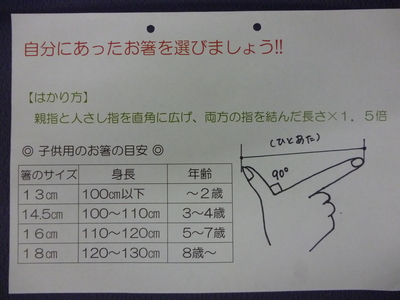 自分にあったお箸を選びましょう!!
【はかり方】
親指と人さし指を直角に広げ、両方の指を結んだ長さ×1.5倍
◎ 子供用のお箸の目安 ◎
箸のサイズ 身長 年齢
13㎝ 100㎝以下 ～2歳
14.5㎝ 100～110㎝ 3～4歳
16㎝ 110～120㎝ 5～7歳
18㎝ 120～130㎝ 8歳～
(ひとあた)
90°